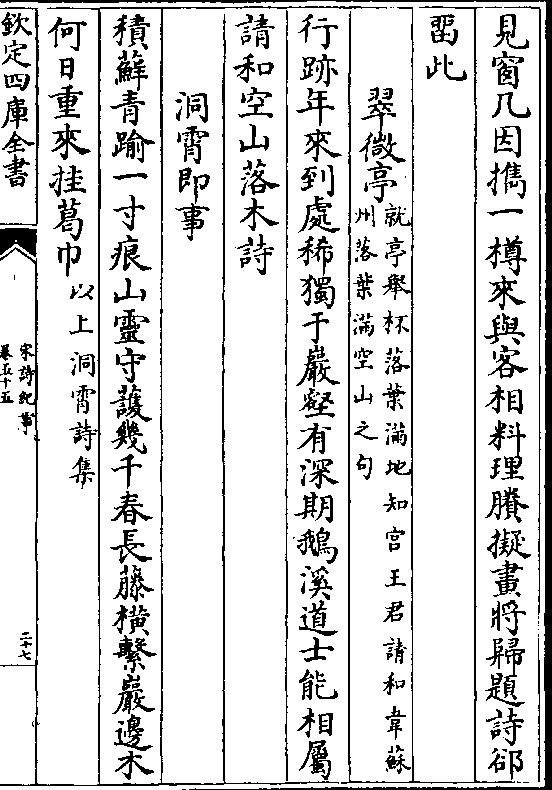 見窗几因擕一樽來與客相料理賸擬畫將歸題詩郤
畱此
翠微亭 就亭舉杯落葉滿地知宫王君請和韋蘇
州落葉滿空山之句
行跡年來到處稀獨于巖壑有深期鵝溪道士能相屬
請和空山落木詩
洞霄即事
積蘚青踰一寸痕山靈守䕶幾千春長藤横繫巖邊木
何日重來挂葛巾 以上洞霄詩集
欽定四庫全書
宋詩紀事
卷五十五
二十七